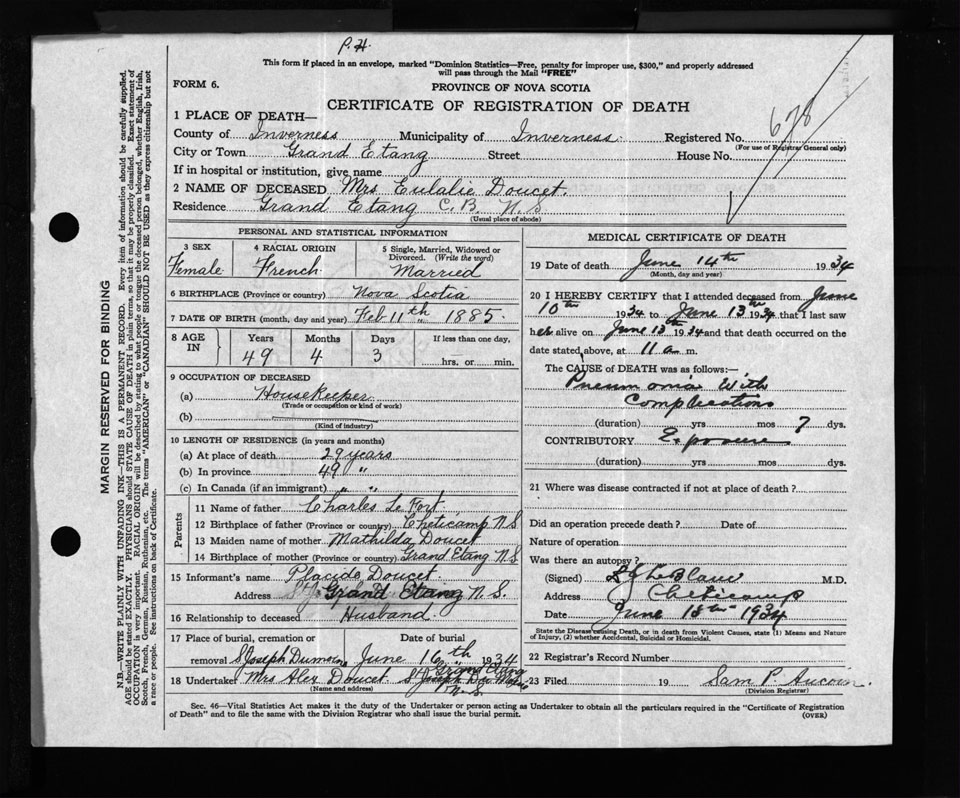 P. H.
This form if placed in an envelope, marked "Dominion Statistics—Free, penalty for improper use, $300," and properly addressed
will pass through the Mail "FREE"
FORM 6.
PROVINCE OF NOVA SCOTIA
CERTIFICATE OF REGISTRATION OF DEATH
1 PLACE OF DEATH—
County of Inverness Municipality of Inverness Registered No. 678
(For use of Registrar General only)
City or Town Grand Etang Street House No.
If in hospital or institution, give name
2 NAME OF DECEASED Mrs Eulalie Doucet.
Residence Grand Etang C. B. N. S
(Usual place of abode)
PERSONAL AND STATISTICAL INFORMATION
3 SEX 4 RACIAL ORIGIN 5 Single, Married, Widowed or
Divorced. (Write the word)
Female French Married
6 BIRTHPLACE (Province or country) Nova Scotia
7 DATE OF BIRTH (month, day and year) Feb 11th 1885.
8 AGE IN Years Months Days If less than one day,
49 4 3 hrs. or min.
9 OCCUPATION OF DECEASED
(a) Housekeeper
(Trade or occupation or kind of work)
(b)
(Kind of industry)
10 LENGTH OF RESIDENCE (in years and months)
(a) At place of death 29 years
(b) In province 49 "
(c) In Canada (if an immigrant) " "
Parents
11 Name of father Charles Le Fort
12 Birthplace of father (Province or country) Cheticamp N S
13 Maiden name of mother Mathilda Doucet
14 Birthplace of mother (Province or country) Grand Etang N S
15 Informant's name Placide Doucet
Address Grand Etang N. S.
16 Relationship to deceased Husband
17 Place of burial, cremation or Date of burial
removal St Joseph June 16th 1934
18 Undertaker Mrs Alex Doucet St Joseph N. S
(Name and address)
MEDICAL CERTIFICATE OF DEATH
19 Date of death June 14th 1934
(Month, day and year)
20 I HEREBY CERTIFY that I attended deceased from June
10th 1934 to June 13th 1934 that I last saw
her alive on June 13th 1934 and that death occurred on the
date stated above, at 11 a m.
The CAUSE of DEATH was as follows:—
Pneumonia With
Complications
(duration) yrs mos 7 dys.
CONTRIBUTORY Exposure
(duration) yrs mos dys.
21 Where was disease contracted if not at place of death?
Did an operation precede death? Date of
Nature of operation
Was there an autopsy?
(Signed) LeBlanc M.D.
Address Cheticamp
Date June 1934
State the Disease causing Death, or in death from Violent Causes, state (1) Means and Nature
of Injury, (2) whether Accidental, Suicidal or Homicidal.
22 Registrar's Record Number
23 Filed 19 Sam P. Aucoin.
(Division Registrar)
Sec. 46—Vital Statistics Act makes it the duty of the Undertaker or person acting as Undertaker to obtain all the particulars required in the "Certificate of Registration
of Death" and to file the same with the Division Registrar who shall issue the burial permit.
(OVER)
MARGIN RESERVED FOR BINDING
N.B.—WRITE PLAINLY WITH UNFADING INK—THIS IS A PERMANENT RECORD. Every item of information should be carefully supplied.
AGE should be stated EXACTLY. PHYSICIANS should STATE CAUSE OF DEATH in plain terms, so that it may be properly classified. Exact statement of
OCCUPATION is very important. RACIAL ORIGIN will be described by stating to what people or tongue the deceased person belonged, whether English, Irish,
Scotch, French, German, Russian, Ruthenian, etc. The terms "AMERICAN" or "CANADIAN" SHOULD NOT BE USED as they express citizenship but not
a race or people. See instructions on back of Certificate.